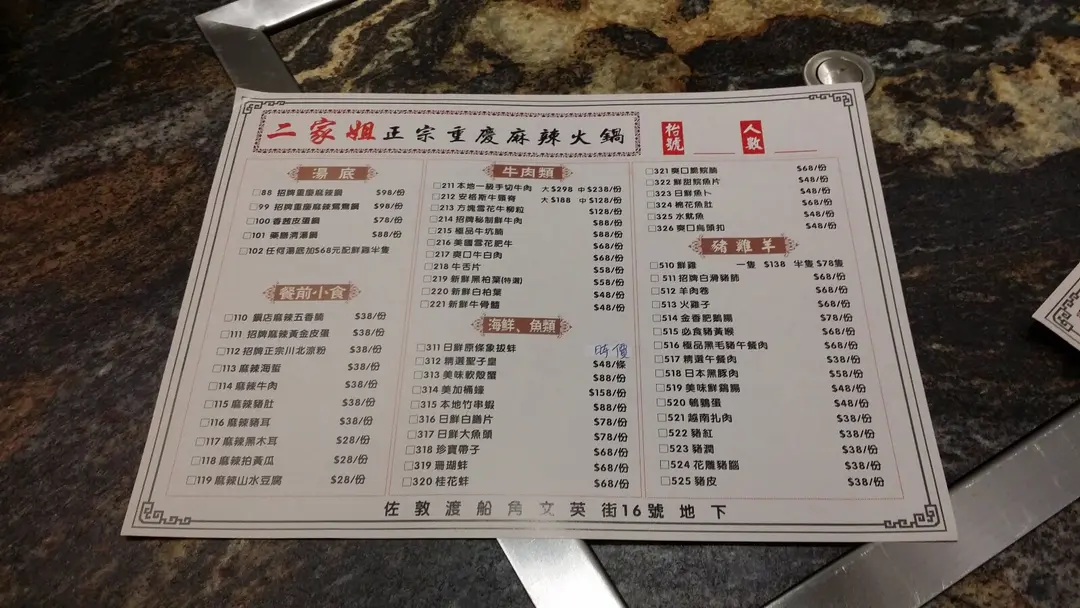 二家姐正宗重慶麻辣火鍋
枱號
人數
湯底
88 招牌重慶麻辣鍋 $98/份
99 招牌重慶麻辣鴛鴦鍋 $98/份
100 香茜皮蛋鍋 $78/份
101 藥膳清湯鍋 $88/份
102 任何湯底加$68元配鮮雞半隻
餐前小食
110 鍋店麻辣五香腩 $38/份
111 招牌麻辣黃金皮蛋 $38/份
112 招牌正宗川北涼粉 $38/份
113 麻辣海蜇 $38/份
114 麻辣牛肉 $38/份
115 麻辣豬肚 $38/份
116 麻辣豬耳 $38/份
117 麻辣黑木耳 $28/份
118 麻辣拍黃瓜 $28/份
119 麻辣山水豆腐 $28/份
牛肉類
211 本地一級手切牛肉 大$298 中$238/份
212 安格斯牛頸脊 大$188 中$128/份
213 方塊雪花牛柳粒 $128/份
214 招牌秘制鮮牛肉 $88/份
215 極品牛坑腩 $88/份
216 美國雪花肥牛 $68/份
217 爽口牛白肉 $68/份
218 牛舌片 $58/份
219 新鮮黑柏葉(特選) $58/份
220 新鮮白柏葉 $48/份
221 新鮮牛骨髓 $48/份
海鮮、魚類
311 日鮮原條象拔蚌 時價
312 精選聖子皇 $48/條
313 美味軟殼蟹 $88/份
314 美加桶蠔 $158/份
315 本地竹串蝦 $88/份
316 日鮮白鱔片 $78/份
317 日鮮大魚頭 $78/份
318 珍寶帶子 $68/份
319 珊瑚蚌 $68/份
320 桂花蚌 $68/份
321 爽口脆鯇腩 $68/份
322 鮮甜鯇魚片 $48/份
323 日鮮魚卜 $48/份
324 棉花魚肚 $68/份
325 水魷魚 $48/份
326 爽口烏頭扣 $48/份
豬雞羊
510 鮮雞 一隻 $138 半隻 $78隻
511 招牌白滑豬肺 $68/份
512 羊肉卷 $68/份
513 火雞子 $68/份
514 金香肥鵝腸 $78/份
515 必食豬黃喉 $68/份
516 極品黑毛豬午餐肉 $68/份
517 精選午餐肉 $38/份
518 日本黑豚肉 $58/份
519 美味鮮鴨腸 $48/份
520 鵪鶉蛋 $48/份
521 越南扎肉 $38/份
522 豬紅 $38/份
523 豬潤 $38/份
524 花雕豬腦 $38/份
525 豬皮 $38/份
佐敦渡船角文英街16號地下